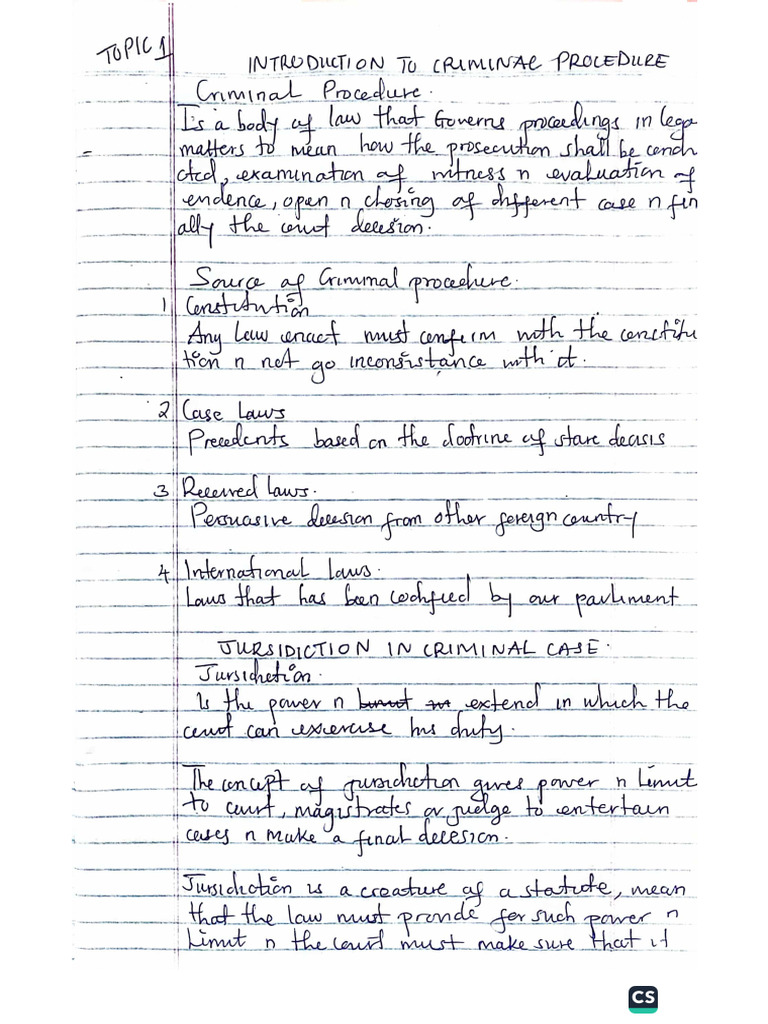 TOPIC 1
INTRODUCTION TO CRIMINAL PROCEDURE
Criminal Procedure.
Is a body of law that Governs proceedings in lega
matters to mean how the prosecution shall be condu
cted, examination of witness n evaluation of
evidence, open n closing of different case n fin
ally the court decesion.
Source of Criminal procedure.
1 Constitution
Any Law enact must conform with the constitu
tion n not go inconsistance with it.
2 Case Laws
Precedents based on the doctrine of stare decisis
3 Received Laws.
Persuasive decesion from other foreign country
4 International Laws.
Laws that has been codified by our parliment
JURSIDICTION IN CRIMINAL CASE.
Jursidiction.
Is the power n extend in which the
court can excercise his duty.
The concept of jursidiction gives power n Limit
to court, magistrates or judge to entertain
cases n make a final decesion.
Jursidiction is a creature of a statute, mean
that the law must provide for such power n
Limit n the court must make sure that it
CS